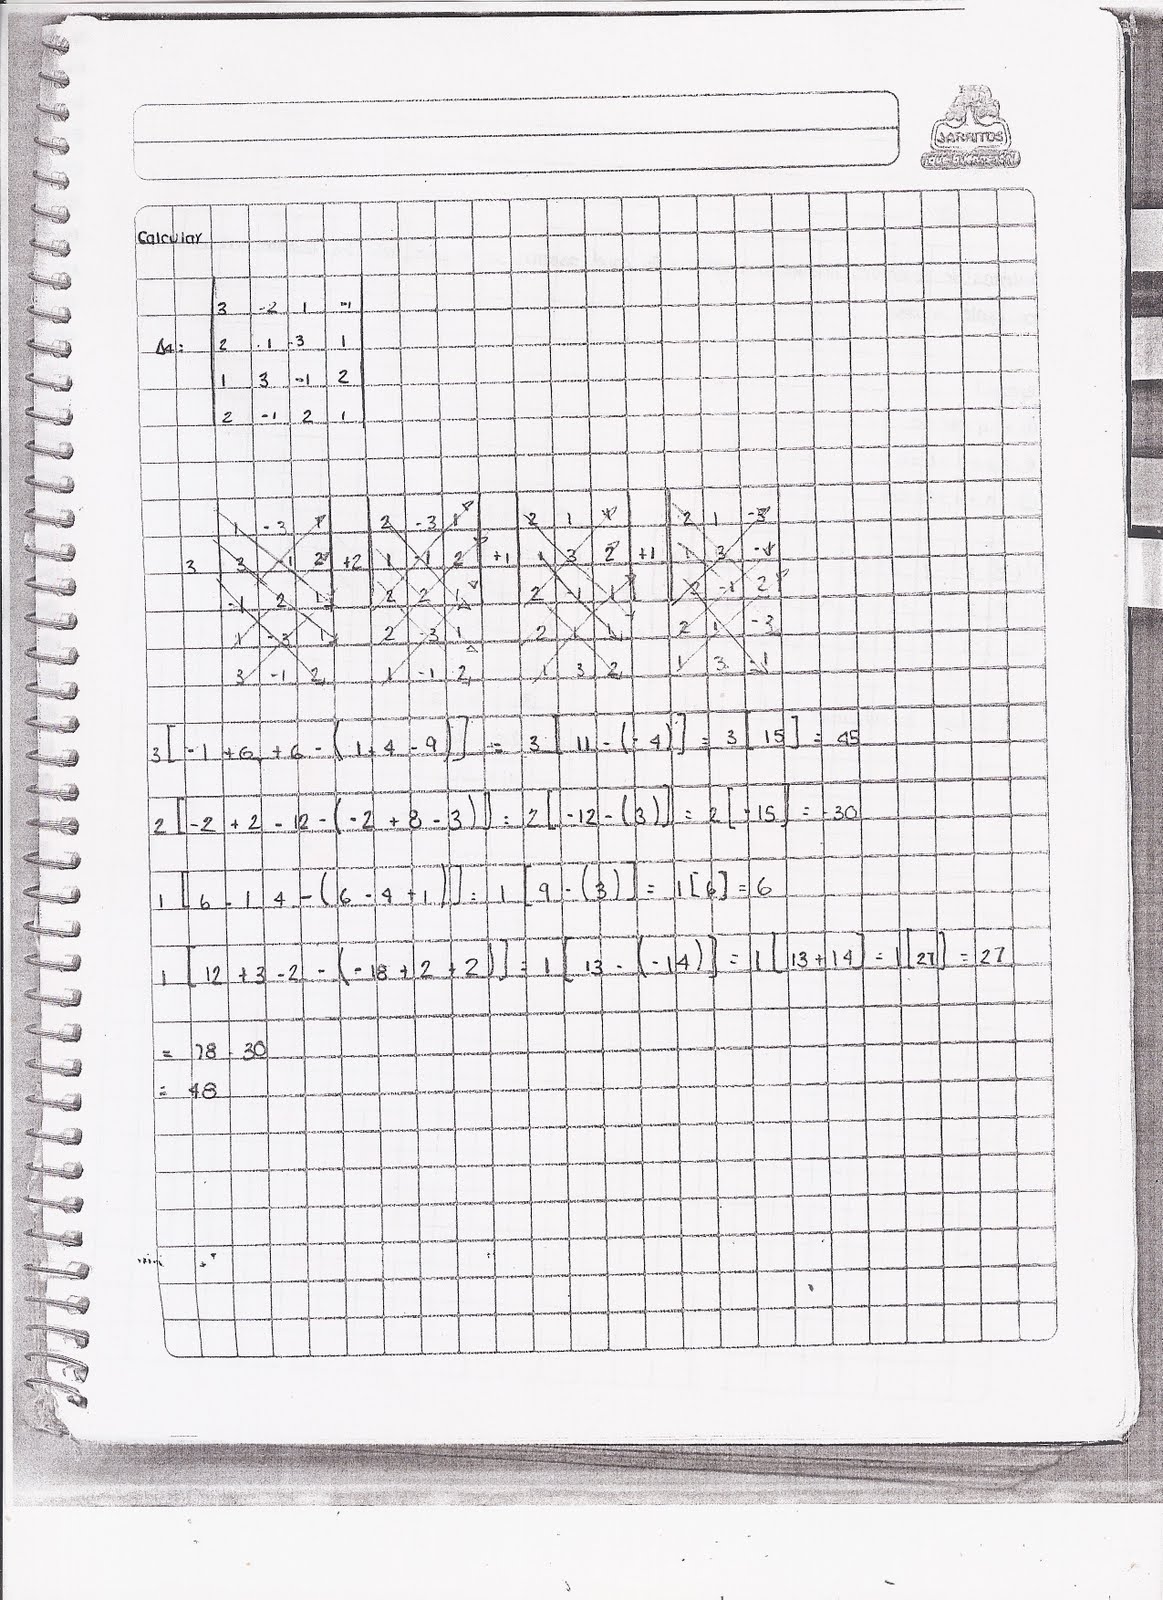 JARRITOS
Calcular
3 -2 1 -1
Δ4: 2 1 -3 1
1 3 -1 2
2 -1 2 1
1 -3 1 2 -3 1 2 1 1 2 1 -3
3 3 -1 2 +2 1 -1 2 +1 1 3 2 +1 1 3 -1
-1 2 1 2 2 1 2 -1 1 2 -1 2
1 -3 1 2 -3 1 2 1 1 2 1 -3
3 -1 2 1 -1 2 1 3 2 1 3 -1
3 [ -1 + 6 + 6 - ( 1 + 4 - 9 ) ] = 3 [ 11 - ( - 4 ) ] = 3 [ 15 ] = 45
2 [ -2 + 2 - 12 - ( -2 + 8 - 3 ) ] = 2 [ -12 - ( 3 ) ] = 2 [ -15 ] = -30
1 [ 6 - 1 4 - ( 6 - 4 + 1 ) ] = 1 [ 9 - ( 3 ) ] = 1 [ 6 ] = 6
1 [ 12 + 3 - 2 - ( -18 + 2 + 2 ) ] = 1 [ 13 - ( -14 ) ] = 1 [ 13 + 14 ] = 1 [ 27 ] = 27
= 78 - 30
= 48